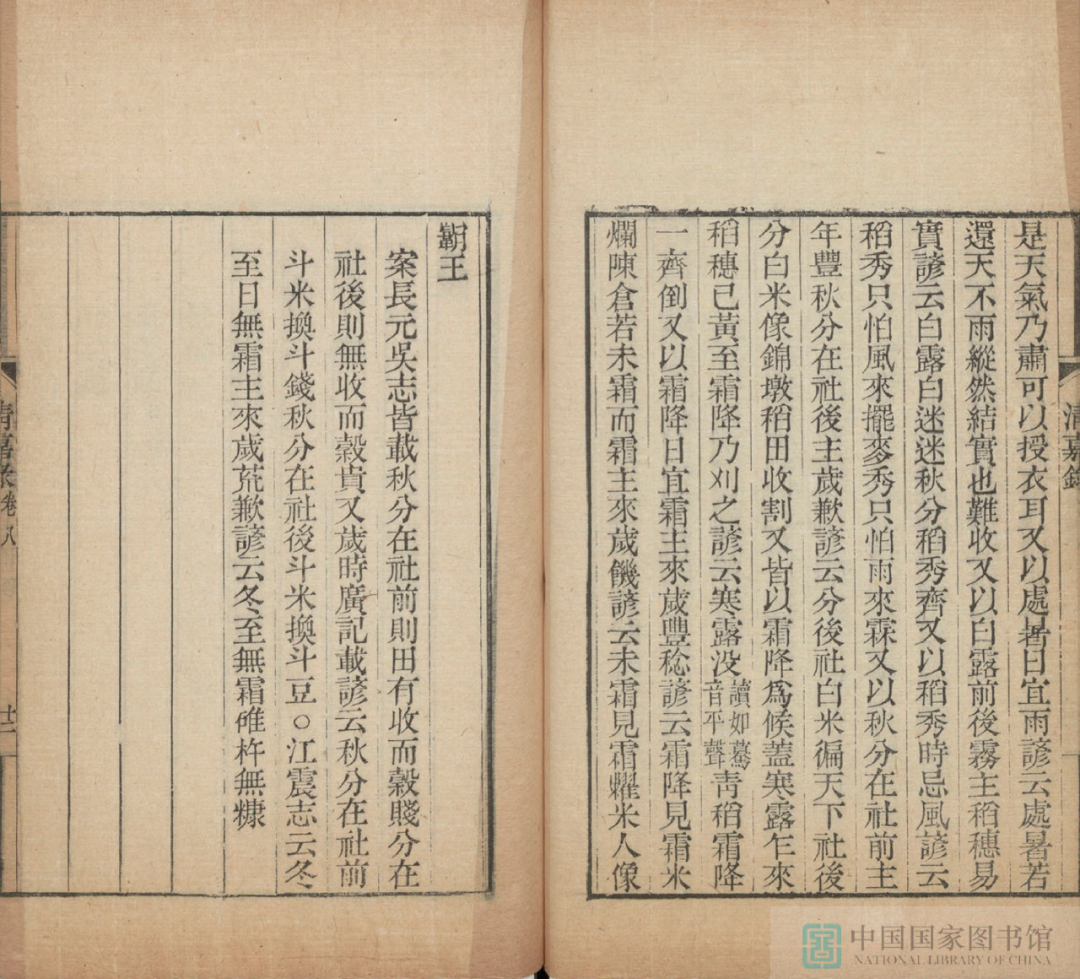 是天氣乃肅可以授衣耳又以處暑日宜雨諺云處暑若
還天不雨縱然結實也難收又以白露前後霧主稻穗易
實諺云白露白迷迷秋分稻秀齊又以稻秀時忌風諺云
稻秀只怕風來擺麥秀只怕雨來霖又以秋分在社前主
年豐秋分在社後主歲歉諺云分後社白米徧天下社後
分白米像錦墩稻田收割又皆以霜降爲候蓋寒露乍來
稻穗已黃至霜降乃刈之諺云寒露没讀如驀音平聲靑稻霜降
一齊倒又以霜降日宜霜主來歲豐稔諺云霜降見霜米
爛陳倉若未霜而霜主來歲饑諺云未霜見霜糶米人像
清嘉錄
霸王
案長元吳志皆載秋分在社前則田有收而穀賤分在
社後則無收而穀貴又歲時廣記載諺云秋分在社前
斗米換斗錢秋分在社後斗米換斗豆○江震志云冬
至日無霜主來歲荒歉諺云冬至無霜碓杵無糠
清嘉彔卷八
廿二
中国国家图书馆
NATIONAL LIBRARY OF CHINA